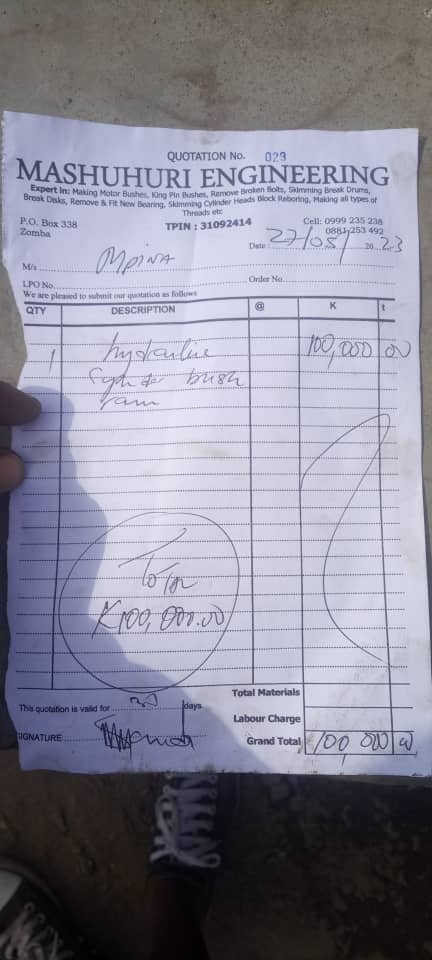 QUOTATION No. 029
MASHUHURI ENGINEERING
Expert in: Making Motor Bushes, King Pin Bushes, Remove Broken Bolts, Skimming Break Drums,
Break Disks, Remove & Fit New Bearing, Skimming Cylinder Heads Block Reboring, Making all types of
Threads etc
P.O. Box 338
Zomba
TPIN : 31092414
Cell: 0999 235 238
0881 253 492
Date : 27/08/ 20 23
M/s Mpina
LPO No. Order No.
We are pleased to submit our quotation as follows
QTY DESCRIPTION @ K t
1 hydraulic 100,000 00
cylinder bush
ram
Total
K100,000.00
Total Materials
This quotation is valid for 30 days
Labour Charge
SIGNATURE
Grand Total 100 000 00